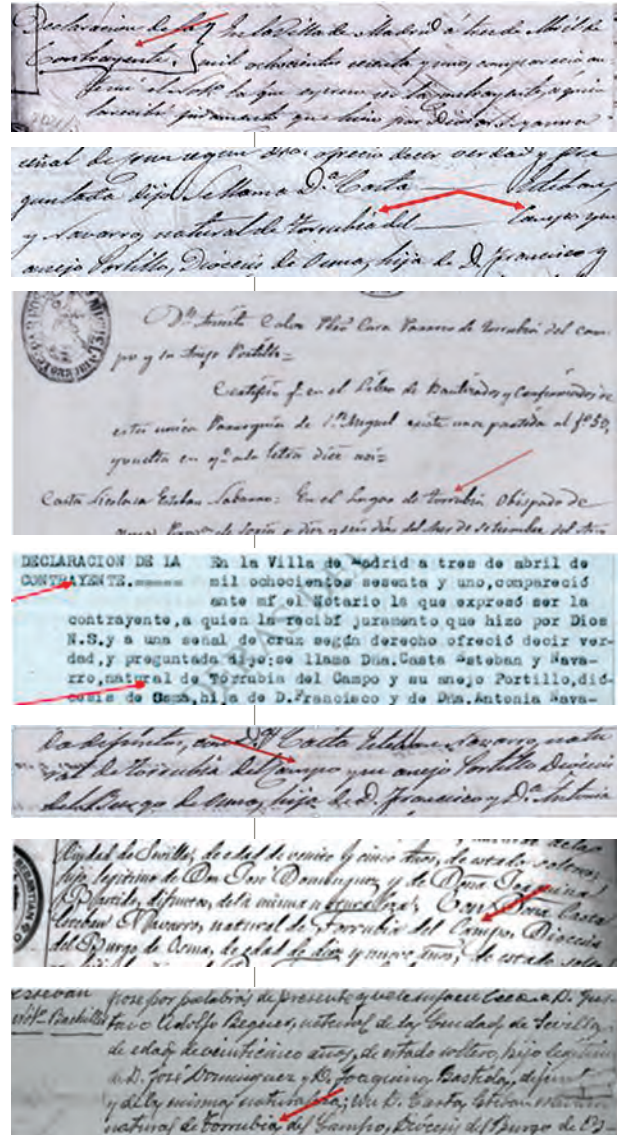 Declaracion de la } En la Villa de Madrid á tres de Abril de
Contrayente. } mil ochocientos sesenta y uno, comparecio an-
temi el la que expresó ser la contrayente, a quien
la recibí juramento que hizo por Dios
señal de cruz segun dro. ofrecio decir verdad y pre
guntada dijo: Se llama D.ª Casta Esteban,
y Navarro, natural de Torrubia del Campo y su
anejo Portillo, Diocesis de Osma, hija de D. Francisco y
D.n Calvo Cura Parroco de Torrubia del Cam-
po y su Anejo Portillo=
Certifico q. en el Libro de Bautizados y Confirmados de
esta unica Parroquia de S.n Miguel existe una partida al f.º 50,
vuelta en q.e a la letra dice asi=
Casta Nicolasa Esteban Nabarro: En el Lugar de Torrubia Obispado de
Osma, de Soria a diez y seis dias del Mes de Setiembre del Año
DECLARACION DE LA En la Villa de Madrid a tres de abril de
CONTRAYENTE.===== mil ochocientos sesenta y uno,compareció
ante mí el Notario la que expresó ser la
contrayente,a quien la recibí juramento que hizo por Dios
N.S.y a una señal de cruz según derecho ofreció decir ver-
dad,y preguntada dijo:se llama Dña.Casta Esteban y Nava-
rro,natural de Torrubia del Campo y su anejo Portillo,dió-
cesis de Osma,hija de D.Francisco y de Dña.Antonia Nava-
difuntos, con D.ª Casta Esteban Navarro, natu
ral de Torrubia del Campo y su anejo Portillo Diocesis
del Burgo de Osma, hija de D. Francisco y D.ª Antonia
Ciudad de Sevilla, de edad de veinte y cinco años, de estado soltero,
hijo legitimo de Don José Dominguez y de Doña Joaquina
Bastida, difuntos, de la misma naturaleza; Con Doña Casta
Esteban Navarro, natural de Torrubia del Campo, Diocesis
del Burgo de Osma, de edad de diez y nueve años, de estado solt
Esteban por palabras de presente D. Gus-
tavo Adolfo Becquer, natural de la Ciudad de Sevilla,
de edad de veinticinco años, de estado soltero, hijo legitimo
de D. José Dominguez y D. Joaquina Bastida, difunt
y de la misma naturaleza; D. Casta, Esteban Navarro
natural de Torrubia del Campo, Diocesis del Burgo de Os-